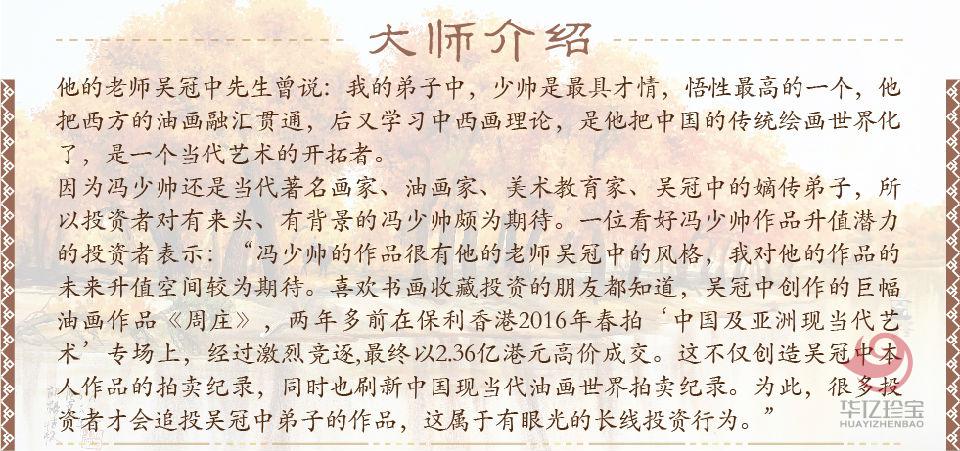 大师介绍
他的老师吴冠中先生曾说：我的弟子中，少帅是最具才情，悟性最高的一个，他
把西方的油画融汇贯通，后又学习中西画理论，是他把中国的传统绘画世界化
了，是一个当代艺术的开拓者。
因为冯少帅还是当代著名画家、油画家、美术教育家、吴冠中的嫡传弟子，所
以投资者对有来头、有背景的冯少帅颇为期待。一位看好冯少帅作品升值潜力
的投资者表示：“冯少帅的作品很有他的老师吴冠中的风格，我对他的作品的
未来升值空间较为期待。喜欢书画收藏投资的朋友都知道，吴冠中创作的巨幅
油画作品《周庄》，两年多前在保利香港2016年春拍‘中国及亚洲现当代艺
术’专场上，经过激烈竞逐,最终以2.36亿港元高价成交。这不仅创造吴冠中本
人作品的拍卖纪录，同时也刷新中国现当代油画世界拍卖纪录。为此，很多投
资者才会追投吴冠中弟子的作品，这属于有眼光的长线投资行为。”
华亿珍宝
HUAYIZHENBAO